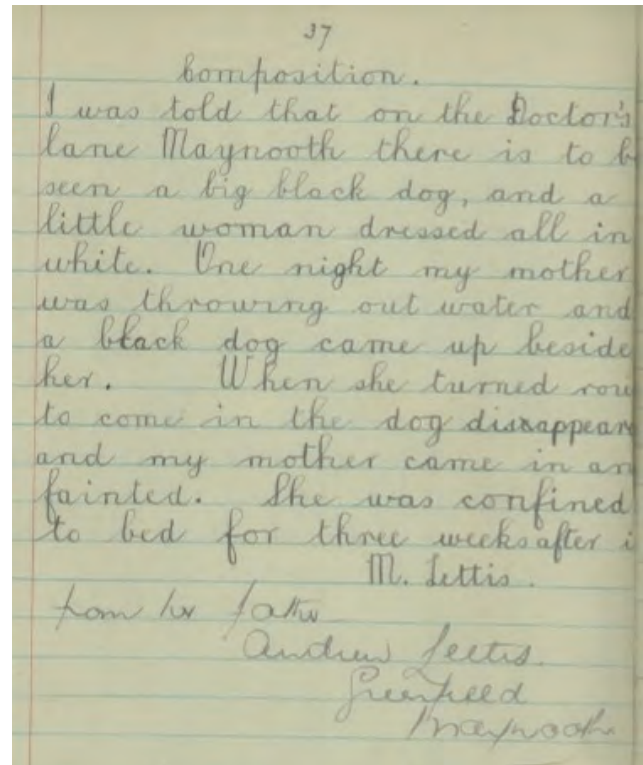 37
Composition.
I was told that on the Doctor's
lane Maynooth there is to b
seen a big black dog, and a
little woman dressed all in
white. One night my mother
was throwing out water and
a black dog came up beside
her. When she turned rou
to come in the dog dissappear
and my mother came in an
fainted. She was confined
to bed for three weeks after i
M. Lettis.
from her father
Andrew Lettis.
Greenfield
Maynooth